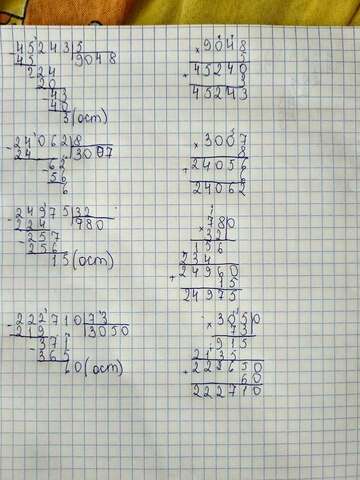 45243 5 9048
45 9048
224
20
43
40
3(ост)
×9048
5
+45240
3
45243
-24062 8
24 3007
62
56
6
×3007
8
+24056
6
24062
-24975 32
224 780
-257
256
15(ост)
×780
32
156
234
+24960
15
24975
-222710 73
219 3050
371
-365
60(ост)
×3050
73
915
2135
+222650
60
222710